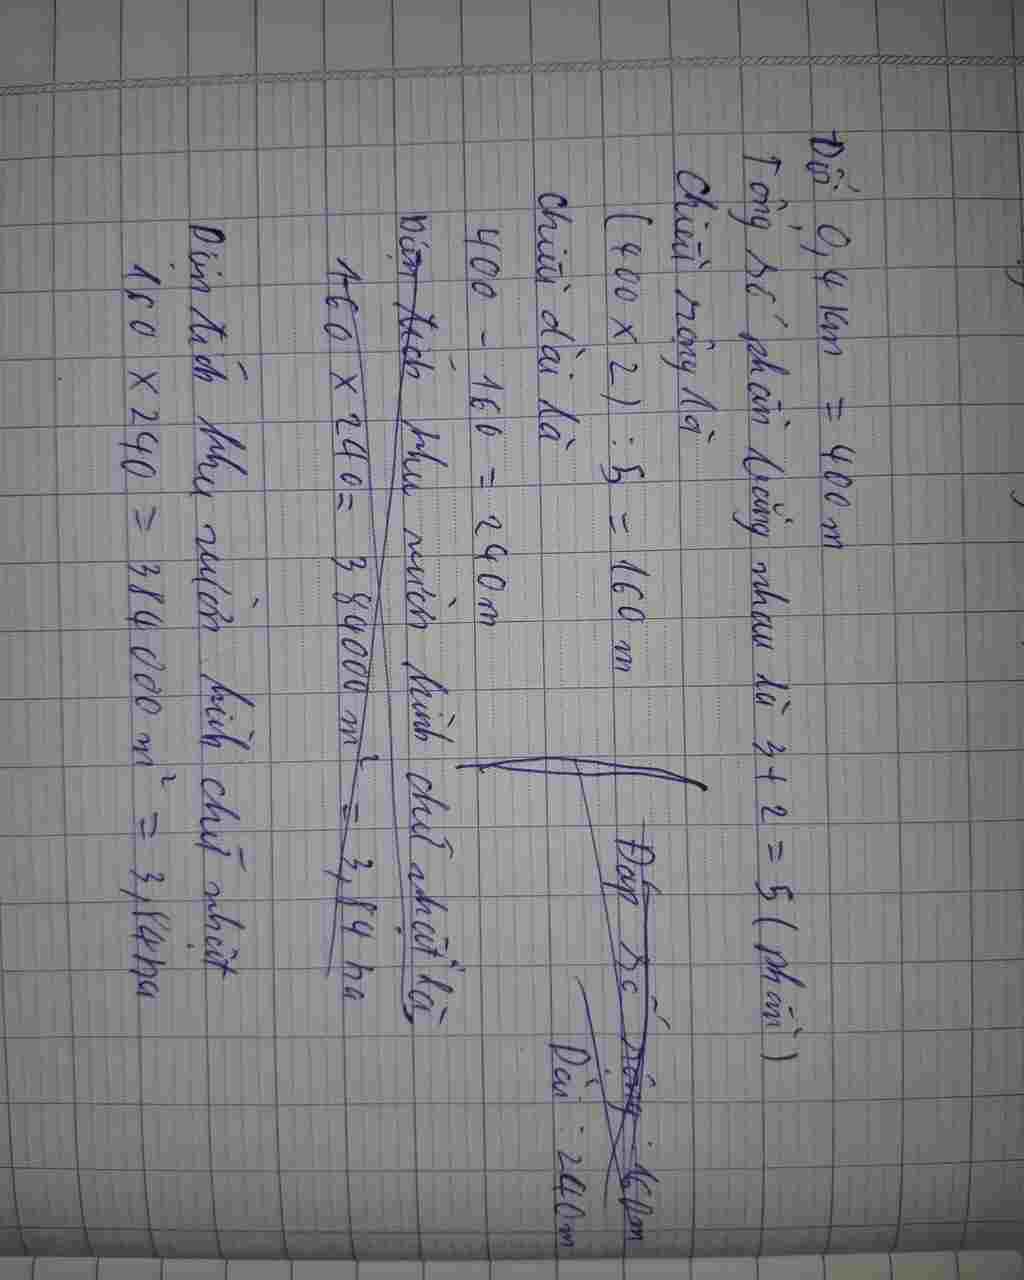 Đổi 0,4 km = 400 m
Tổng số phần bằng nhau là 3 + 2 = 5 (phần)
Chiều rộng là
(400 x 2) : 5 = 160 m
Đáp số rộng: 160m
Chiều dài là
Dài: 240m
400 - 160 = 240m
Diện tích khu vườn hình chữ nhật là
160 x 240 = 384000 m² = 3,84 ha
Diện tích khu vườn hình chữ nhật
160 x 240 = 384000 m² = 3,84ha